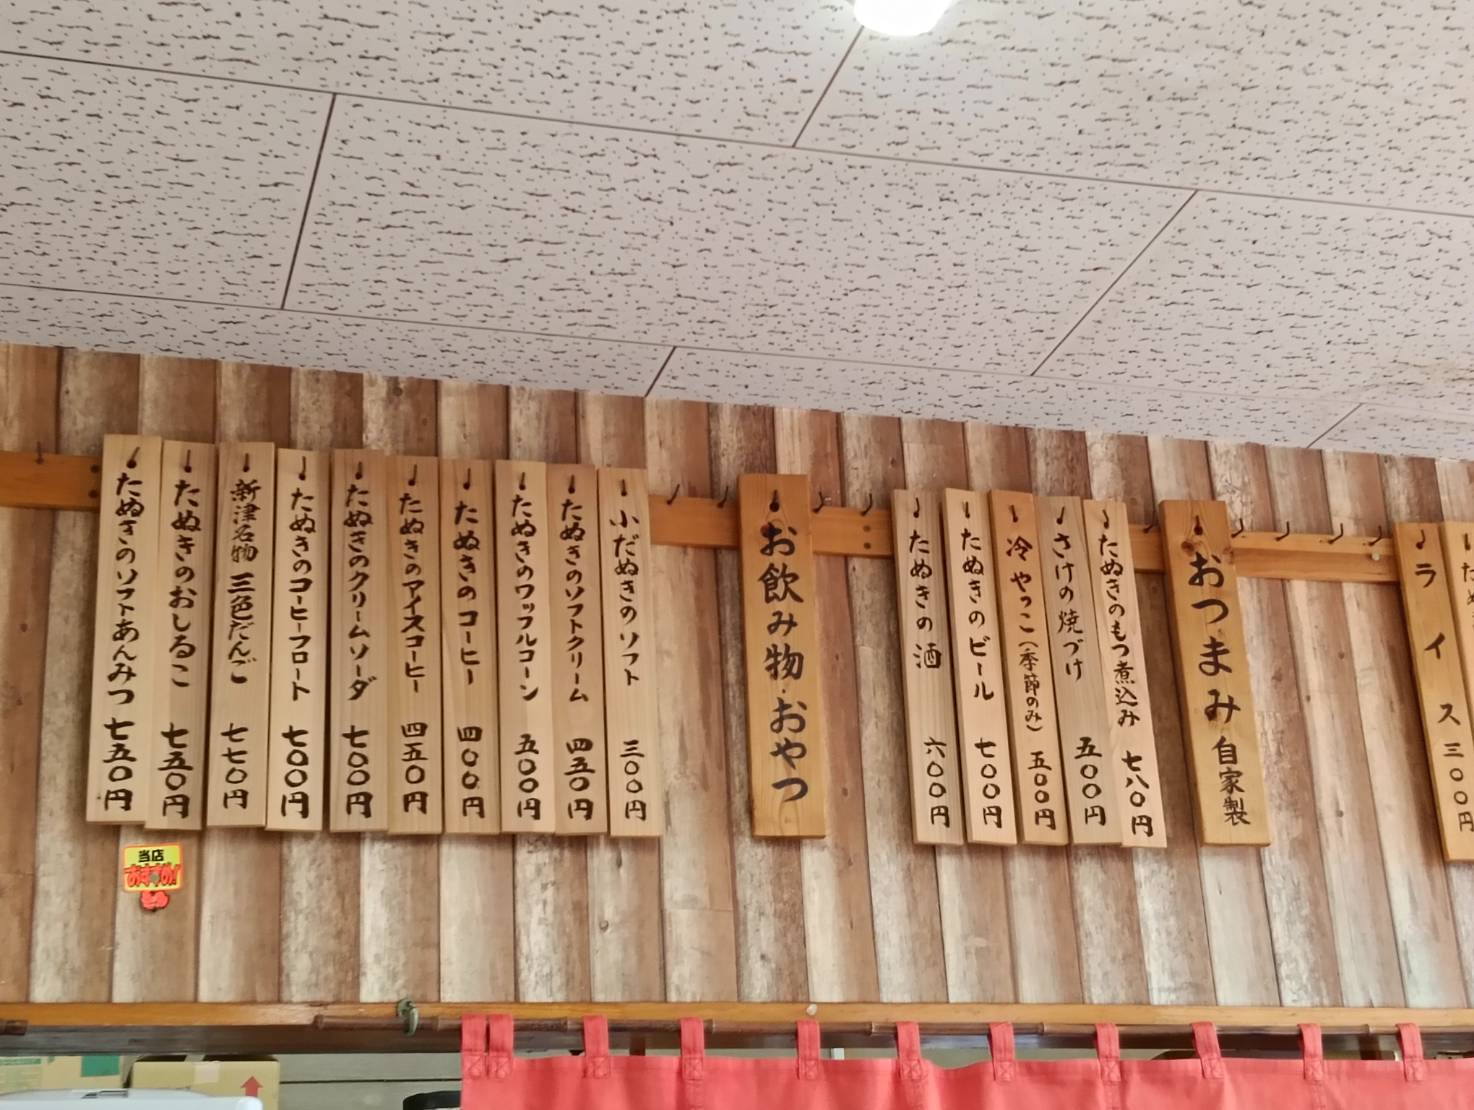 たぬ
ライス 三〇〇円
おつまみ 自家製
たぬきのもつ煮込み 七八〇円
さけの焼づけ 五〇〇円
冷やっこ(季節のみ) 五〇〇円
たぬきのビール 七〇〇円
たぬきの酒 六〇〇円
お飲み物・おやつ
小だぬきのソフト 三〇〇円
たぬきのソフトクリーム 四五〇円
たぬきのワッフルコーン 五〇〇円
たぬきのコーヒー 四〇〇円
たぬきのアイスコーヒー 四五〇円
たぬきのクリームソーダ 七〇〇円
たぬきのコーヒーフロート 七〇〇円
新津名物 三色だんご 七七〇円
たぬきのおしるこ 七五〇円
たぬきのソフトあんみつ 七五〇円
当店
おすすめ!